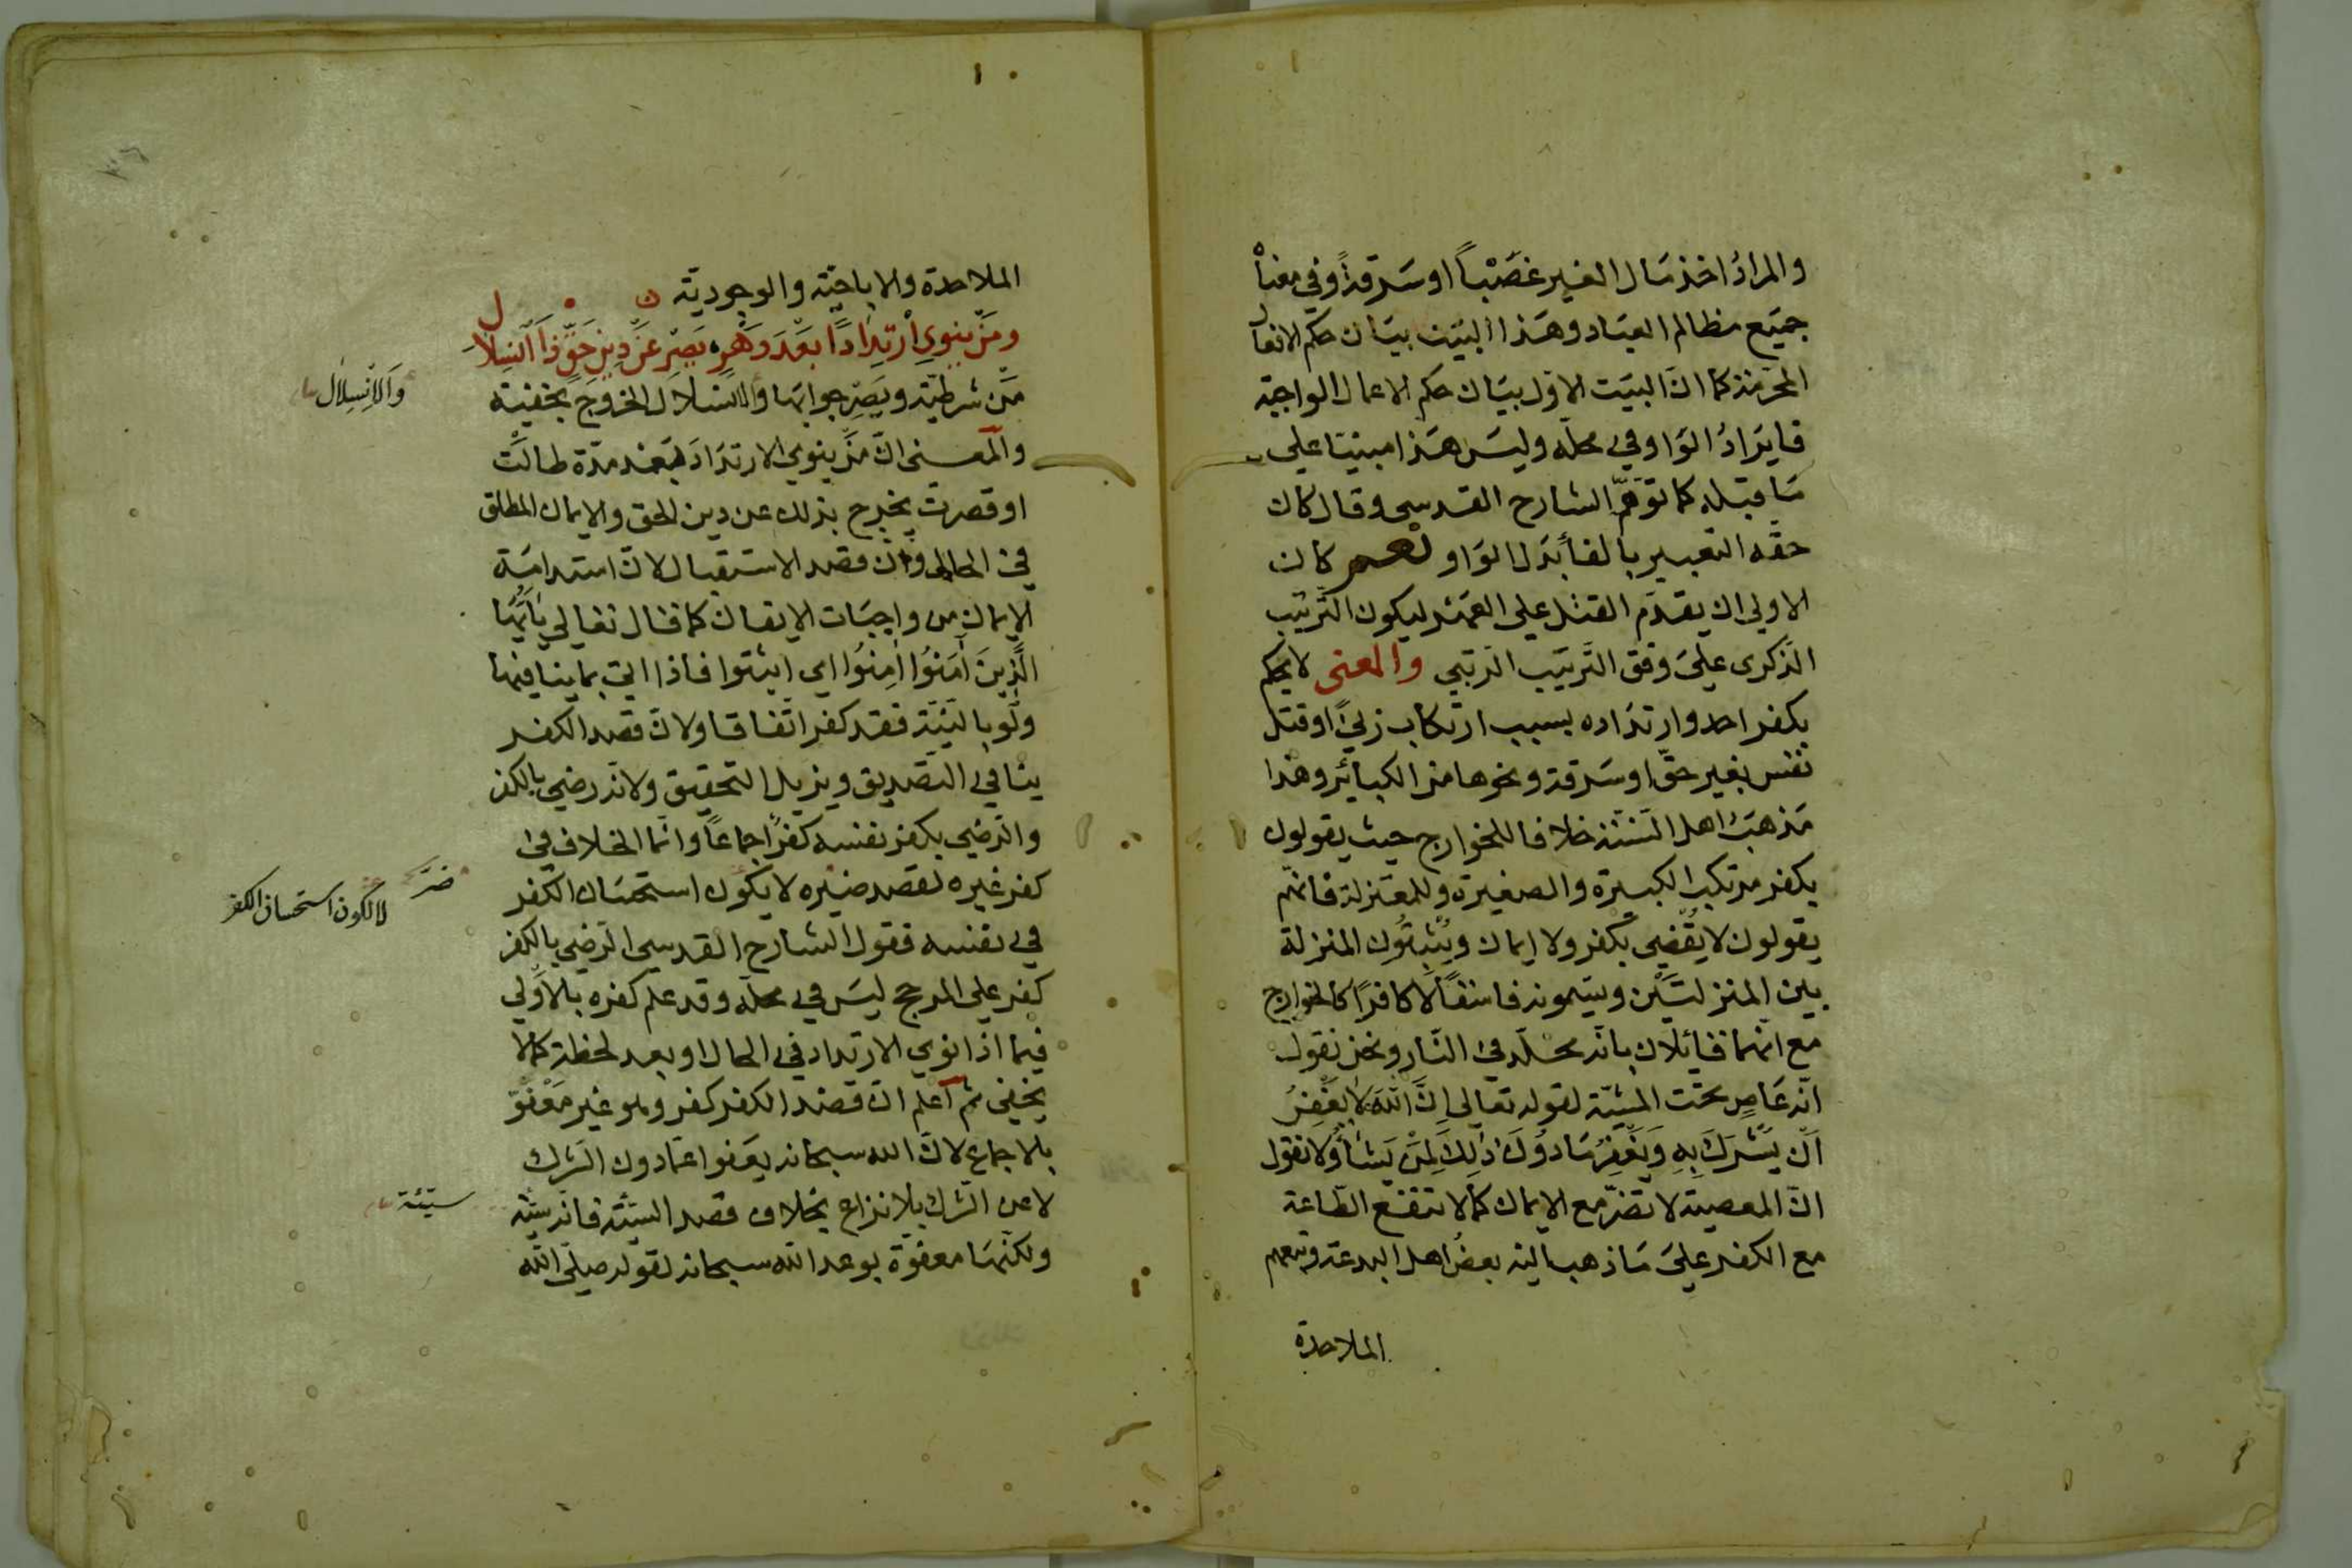 والمرادُ اخذ مَال الغير غصَبْباً او سَرقةً وفي معناهْ
جميَع مظالم العبَاد وهَذا البيَت بيَان حكم الافعال
المحَرّمَة كما انّ البيَت الاوّل بيَان حكم الاعمال الواجبَة
فايرَادُ الوَاو في محلّه وليسَ هَذا مبنيّا على
مَا قبَله كما توَهّمَ الشارح القدسي وقال كان
حقّه التعبير بالفأ بَدَل الوَاو نعم كان
الاولى ان يقدّم القتل على العمَد ليكون التَّرتيب
الذّكرى على وفق التَّرتيَب الرتبي والمعنى لا يحكم
بكفر احد وارتدَاده بسبب ارتكاب زنيً او قتل
نفس بغير حقّ او سَرقة ونحوها من الكبائر وهذا
مَذهبَ اهل السّنّة خلافا للخوارج حيث يقولون
بكفر مرتكب الكبيرة والصغيرة وللمعتزلة فانّهم
يقولون لا يقضي بكفر ولا ايمان ويثبتُون المنزلة
بين المنزلتيَن ويسّمونه فاسقًا لا كافرًا كالخوارج
مع انّهما قائلان بانّه مخلّد في النّار ونحن نقول
انّه عَاصٍ تحت المشيّة لقوله تعالى اِنَّ اللّٰهَ لَا يَغْفِرُ
اَنْ يُشْرَكَ بِهِ وَيَغْفِرُ مَا دُونَ ذٰلِكَ لِمَنْ يَشَأُ ولا نقول
انّ المعصيَة لا تضرّ مع الايمان كما لا تنفع الطّاعة
مع الكفر على مَا ذهب اليْه بعضُ اهل البدعة وتبعهم
الملاحدة
الملاحدة والاباحيّة والوجوديّة
ومَنْ ينوي ارْتِدَادًا بَعْدَ دَهْرٍ يَصِرْ عَنْ دِينِ حَقٍّ ذَا انْسِلَالِ
مَن شرطيّة ويَصِرْ جوابهَا والانسلَال الخروجَ بخفية
والانْسِلَال
والمعنى انّ مَنْ ينوي الارتدَادَ بَعْد مدّة طالتْ
او قصرتْ يخرج بذلك عن دين الحق والايمان المطلق
في الحال وان قصد الاستقبال لانّ استدامَة
الايمان من واجبَات الايقان كما قال تعالى يَاَيُّهَا
الَّذِينَ آمَنُوا اٰمِنُوا اي اثبتوا فاذا اتي بما ينافيهَا
ولو بالنيّة فقد كفر اتفاقا ولانّ قصد الكفر
ينافي التصديق ويزيل التحقيق ولانّه رضي بالكفر
والرّضي بكفر نفسه كفر اجماعاً وانّما الخلاف في
كفر غيره لقصد ضيره لا يكون استحسَان الكفر
ضرّه لا لكون استحسان الكفر
في نفسه فقول الشارح القدسي الرّضي بالكفر
كفر على المرجح ليسَ في محلّه وقد علم كفره بالاَولي
فيما اذا نوي الارتداد في الحال او بعد لحظة كما لا
يخفي ثم اعلم انّ قصْد الكفر كفر وهو غير مَعْفوّ
بالاجماع لانّ الله سبحانه يعَفو عمّا دون الشّرك
لا عن الشّرك بلا نزاع بخلاف قصد السّيّئة فانه سيّئة
سيّئة
ولكنّهَا معفوّة بوعد اللّه سبحانه لقوله صلّى اللّه